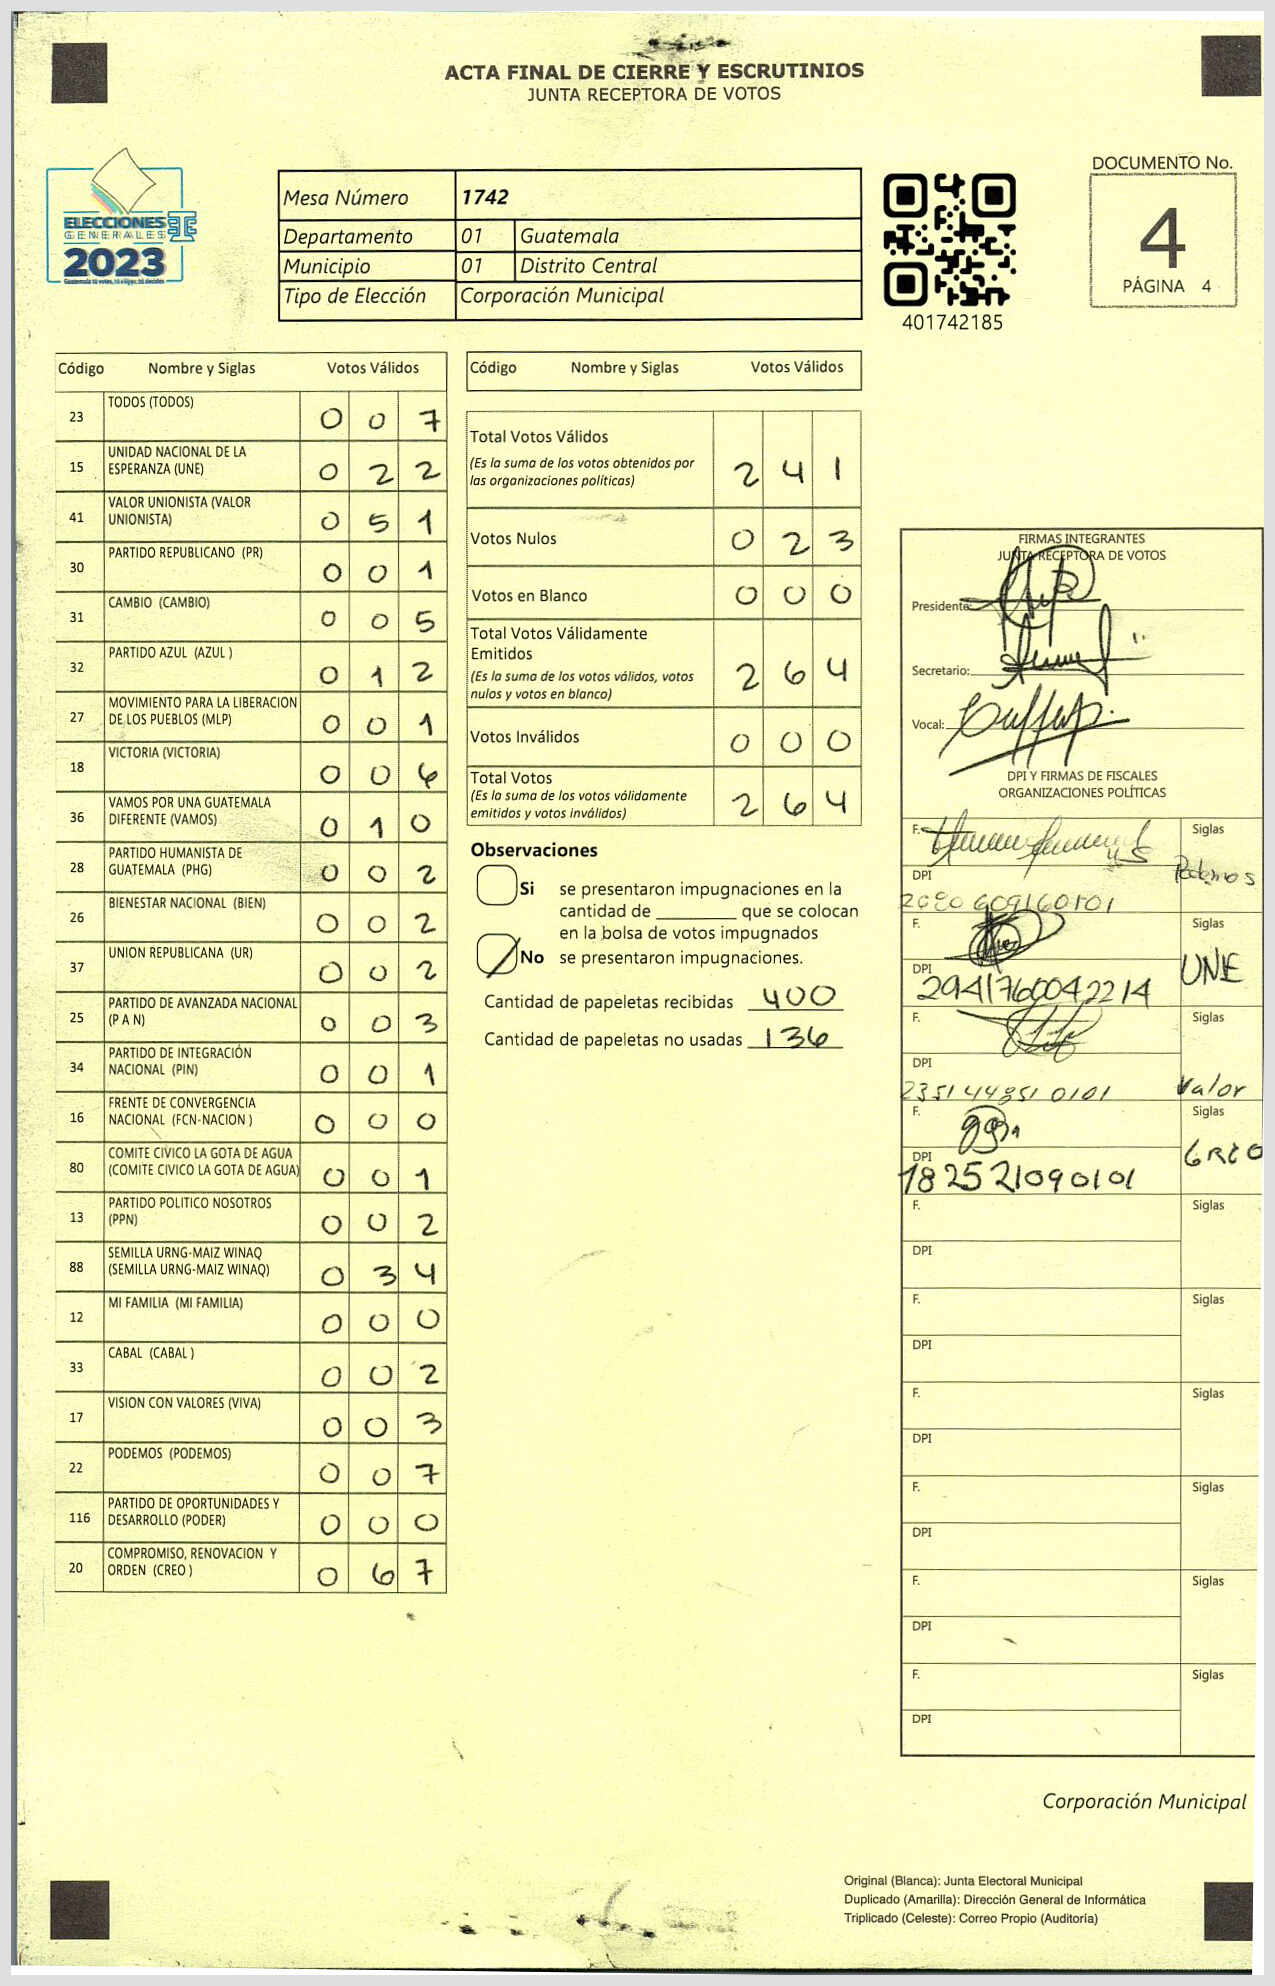 ACTA FINAL DE CIERRE Y ESCRUTINIOS
JUNTA RECEPTORA DE VOTOS
ELECCIONES
GENERALES
2023
Mesa Número 1742
Departamento 01 Guatemala
Municipio 01 Distrito Central
Tipo de Elección Corporación Municipal
401742185
DOCUMENTO No.
4
PÁGINA 4
Código Nombre y Siglas Votos Válidos
23 TODOS (TODOS) 0 0 7
15 UNIDAD NACIONAL DE LA
ESPERANZA (UNE) 0 2 2
41 VALOR UNIONISTA (VALOR
UNIONISTA) 0 5 1
30 PARTIDO REPUBLICANO (PR) 0 0 1
31 CAMBIO (CAMBIO) 0 0 5
32 PARTIDO AZUL (AZUL ) 0 1 2
27 MOVIMIENTO PARA LA LIBERACION
DE LOS PUEBLOS (MLP) 0 0 1
18 VICTORIA (VICTORIA) 0 0 6
36 VAMOS POR UNA GUATEMALA
DIFERENTE (VAMOS) 0 1 0
28 PARTIDO HUMANISTA DE
GUATEMALA (PHG) 0 0 2
26 BIENESTAR NACIONAL (BIEN) 0 0 2
37 UNION REPUBLICANA (UR) 0 0 2
25 PARTIDO DE AVANZADA NACIONAL
(P A N) 0 0 3
34 PARTIDO DE INTEGRACIÓN
NACIONAL (PIN) 0 0 1
16 FRENTE DE CONVERGENCIA
NACIONAL (FCN-NACION ) 0 0 0
80 COMITE CIVICO LA GOTA DE AGUA
(COMITE CIVICO LA GOTA DE AGUA) 0 0 1
13 PARTIDO POLITICO NOSOTROS
(PPN) 0 0 2
88 SEMILLA URNG-MAIZ WINAQ
(SEMILLA URNG-MAIZ WINAQ) 0 3 4
12 MI FAMILIA (MI FAMILIA) 0 0 0
33 CABAL (CABAL ) 0 0 2
17 VISION CON VALORES (VIVA) 0 0 3
22 PODEMOS (PODEMOS) 0 0 7
116 PARTIDO DE OPORTUNIDADES Y
DESARROLLO (PODER) 0 0 0
20 COMPROMISO, RENOVACION Y
ORDEN (CREO ) 0 6 7
Código Nombre y Siglas Votos Válidos
Total Votos Válidos
(Es la suma de los votos obtenidos por
las organizaciones políticas) 2 4 1
Votos Nulos 0 2 3
Votos en Blanco 0 0 0
Total Votos Válidamente
Emitidos
(Es la suma de los votos válidos, votos
nulos y votos en blanco) 2 6 4
Votos Inválidos 0 0 0
Total Votos
(Es la suma de los votos válidamente
emitidos y votos inválidos) 2 6 4
Observaciones
Si se presentaron impugnaciones en la
cantidad de ________ que se colocan
en la bolsa de votos impugnados
No se presentaron impugnaciones.
Cantidad de papeletas recibidas 400
Cantidad de papeletas no usadas 136
FIRMAS INTEGRANTES
JUNTA RECEPTORA DE VOTOS
Presidente:
Secretario:
Vocal:
DPI Y FIRMAS DE FISCALES
ORGANIZACIONES POLÍTICAS
F. Siglas
DPI Podemos
F. Siglas
DPI UNE
2941760042214
F. Siglas
DPI Valor
2351448510101
F. Siglas
DPI
182521090101
F. Siglas
DPI
F. Siglas
DPI
F. Siglas
DPI
F. Siglas
DPI
F. Siglas
DPI
F. Siglas
DPI
Corporación Municipal
Original (Blanca): Junta Electoral Municipal
Duplicado (Amarilla): Dirección General de Informática
Triplicado (Celeste): Correo Propio (Auditoría)